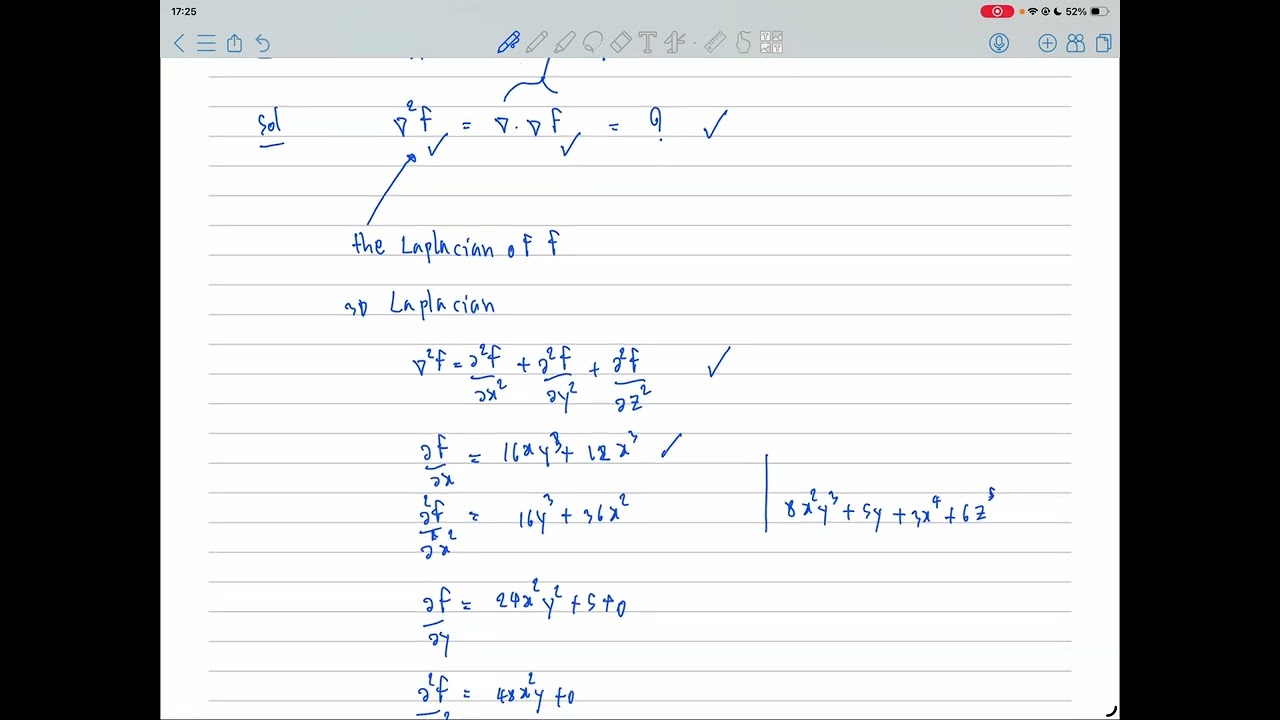 17:25
52%
Sol ∇²f = ∇·∇f = ?
the Laplacian of f
3D Laplacian
∇²f = ∂²f/∂x² + ∂²f/∂y² + ∂²f/∂z²
∂f/∂x = 16xy³ + 12x³
∂²f/∂x² = 16y³ + 36x²
8x²y³ + 5y + 3x⁴ + 6z⁵
∂f/∂y = 24x²y² + 5 + 0
∂²f = 48x²y + 0